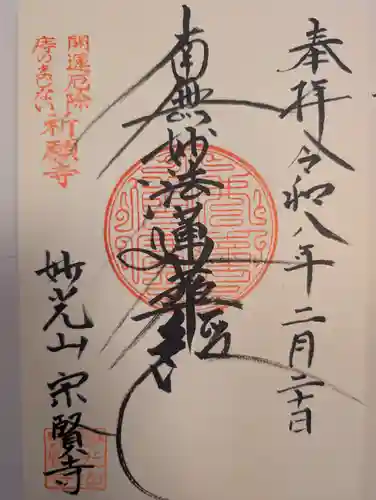 奉拝 令和八年二月二十日
南無妙法蓮華経
開運厄除
寺のまじない 祈願寺
妙光山 宗賢寺